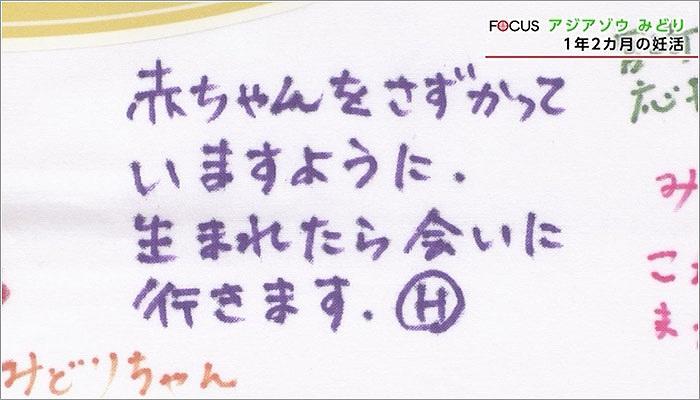 FOCUS アジアゾウ みどり
1年2カ月の妊活
赤ちゃんをさずかって
いますように.
生まれたら会いに
行きます. Ⓗ
みどりちゃん
応
み
こ
ま